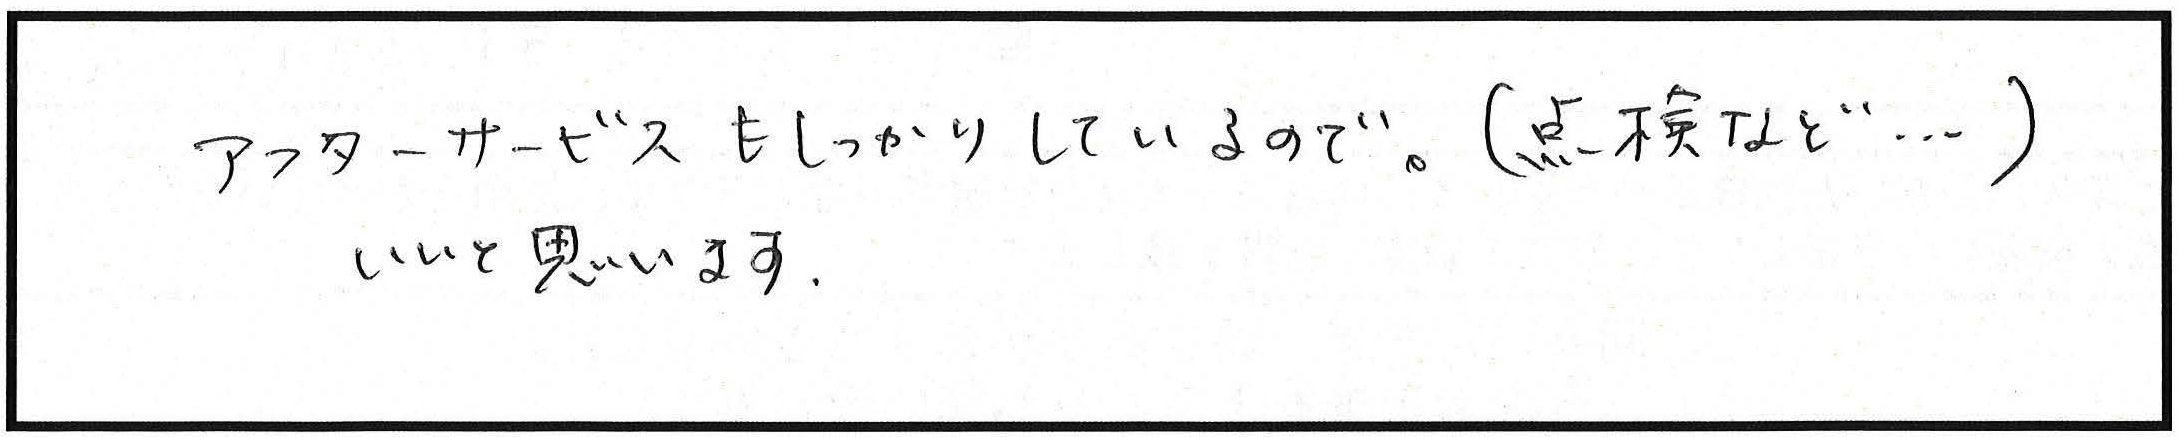 アフターサービスもしっかりしているので。(点検など…)
いいと思います.